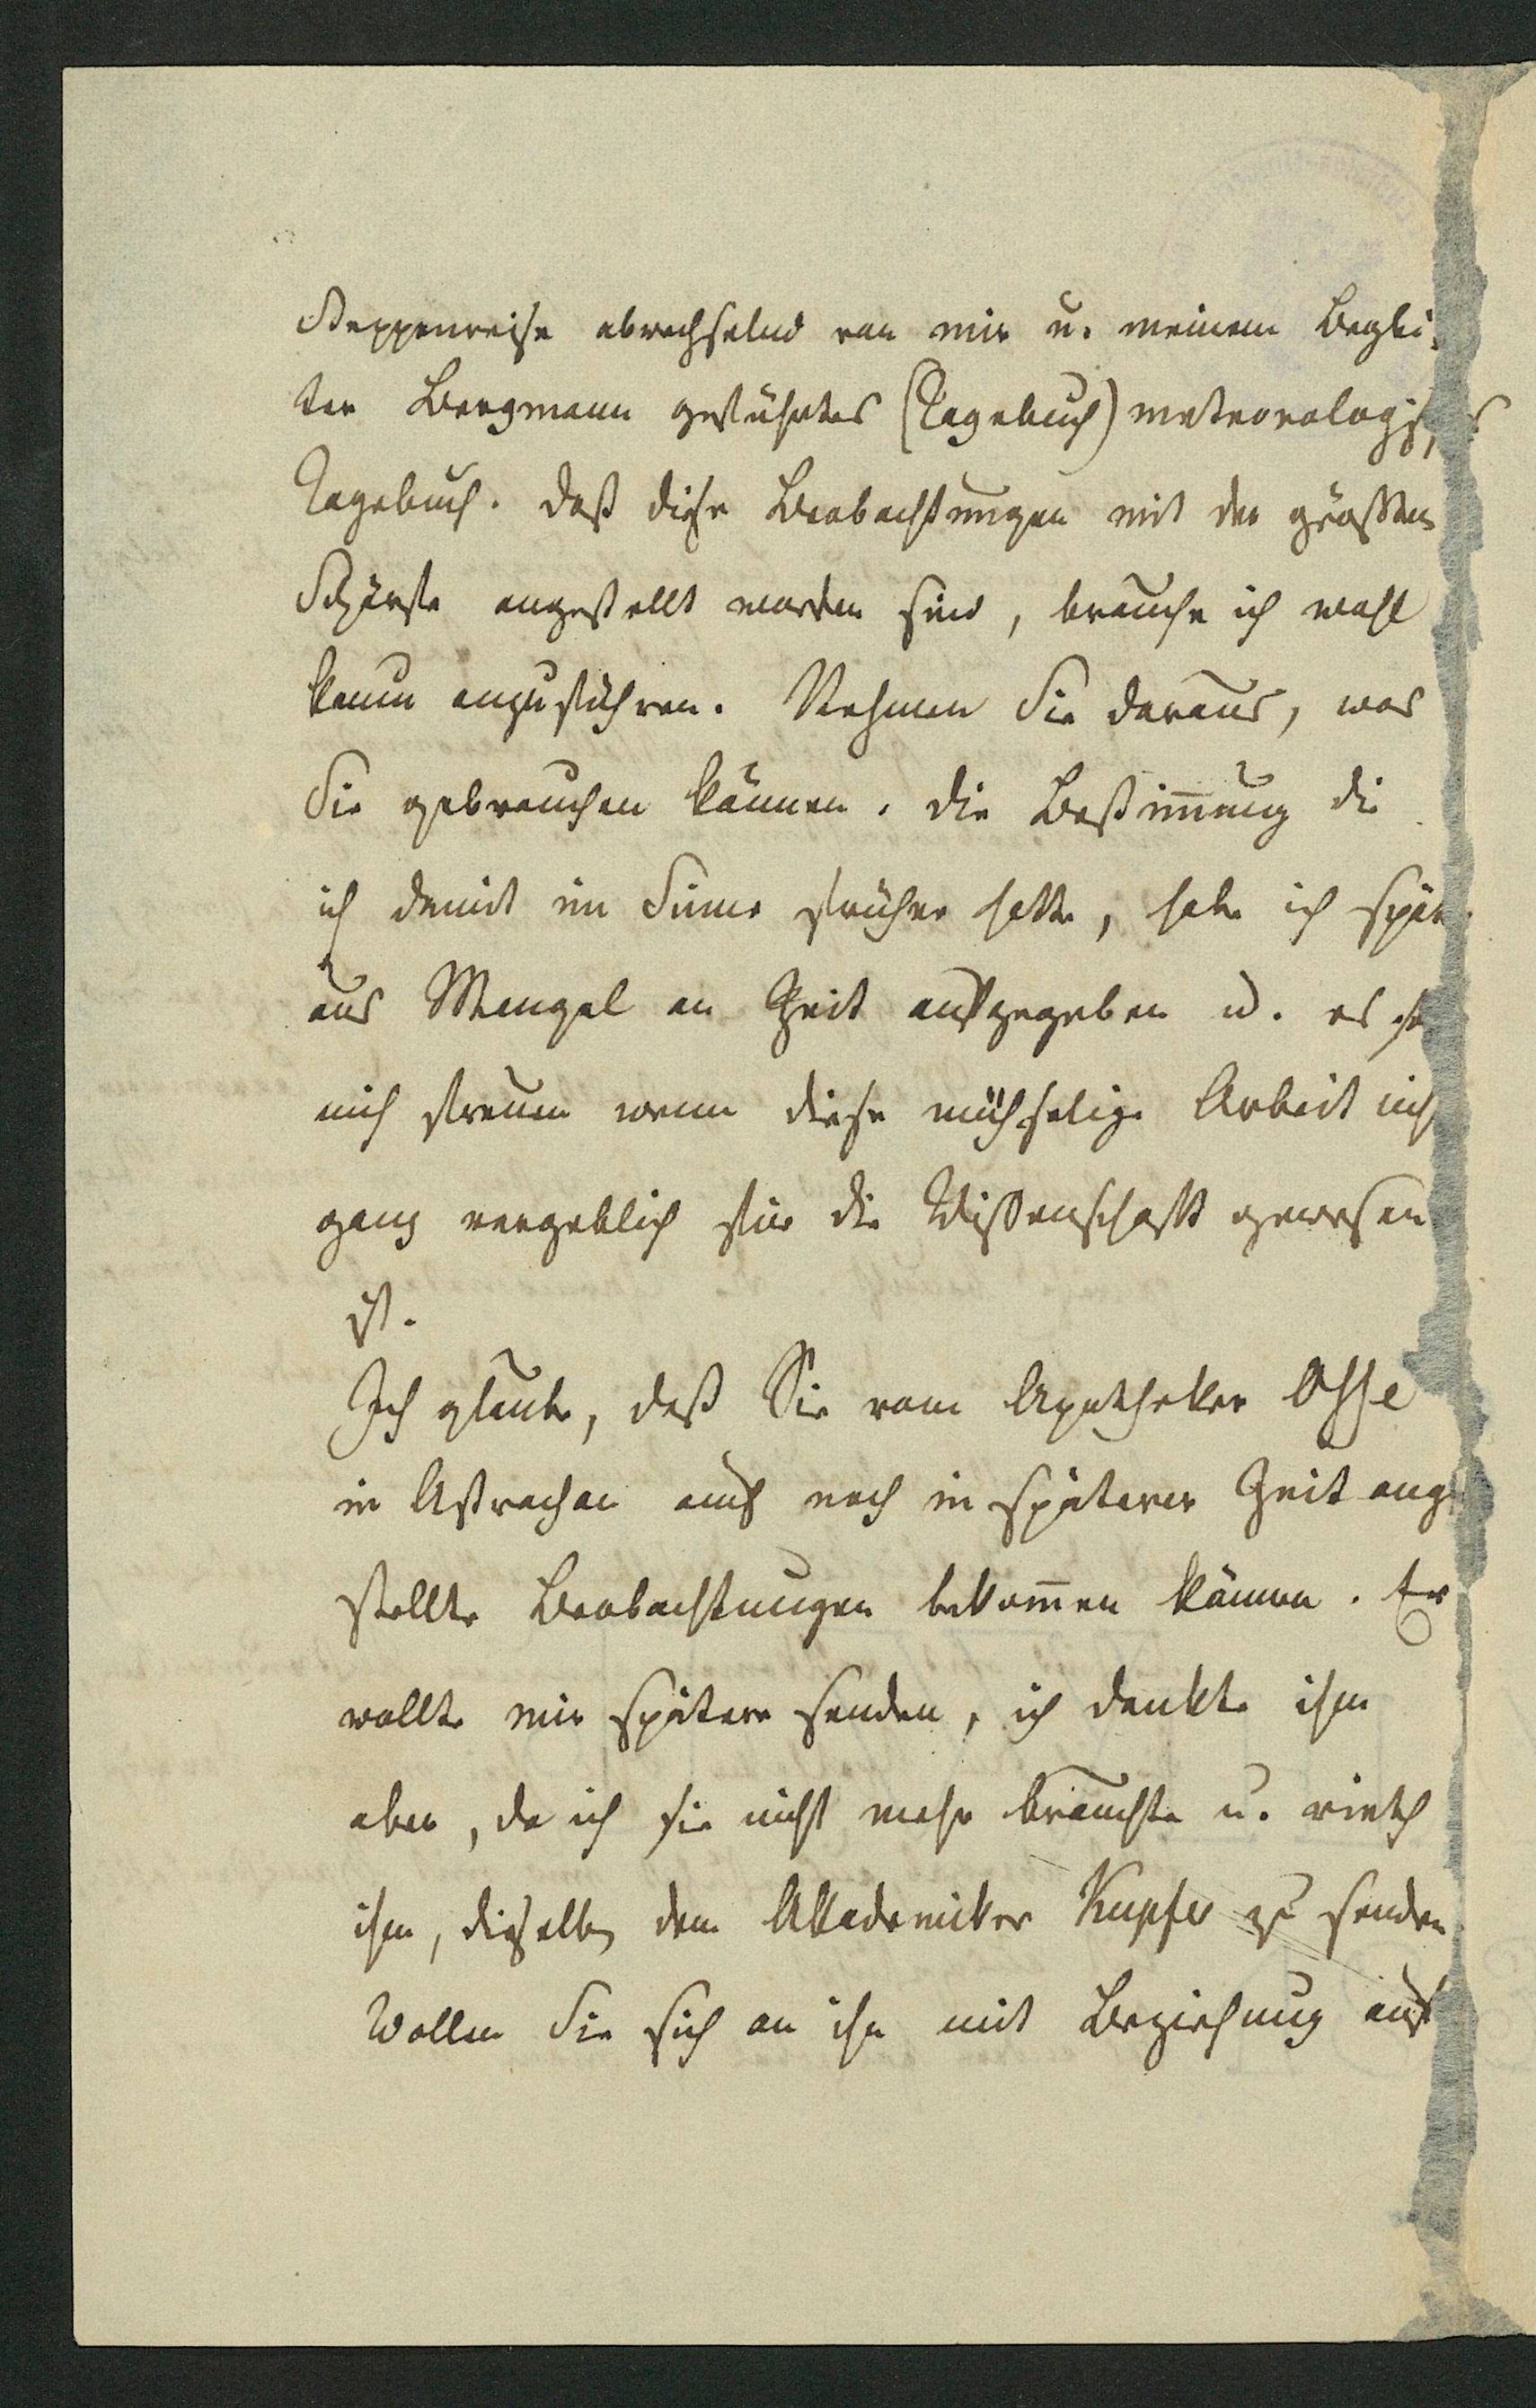 Steppenreise abwechselnd von mir u. meinem Beglei-
ter Bergmann geführtes (Tagebuch) meteorologisches
Tagebuch. Daß diese Beobachtungen mit der größten
Schärfe angestellt worden sind, brauche ich wohl
kaum anzuführen. Nehmen Sie daraus, was
Sie gebrauchen können. Die Bestim̅ung die
ich damit im Sinne früher hatte, habe ich spät
aus Mangel an Zeit aufgegeben u. es
mich freuen wenn diese mühselige Arbeit nich
ganz vergeblich für die Wissenschaft gewesen
ist.
Ich glaube, daß Sie vom Apotheker Osse
in Astrachan auch noch in späterer Zeit ange
stellte Beobachtungen bekom̅en können. Er
wollte mir spätere senden, ich dankte ihm
aber, da ich sie nicht mehr brauchte u. rieth
ihm, dieselben dem Akademiker Kupfer zu senden
Wollen Sie sich an ihn mit Beziehung auf